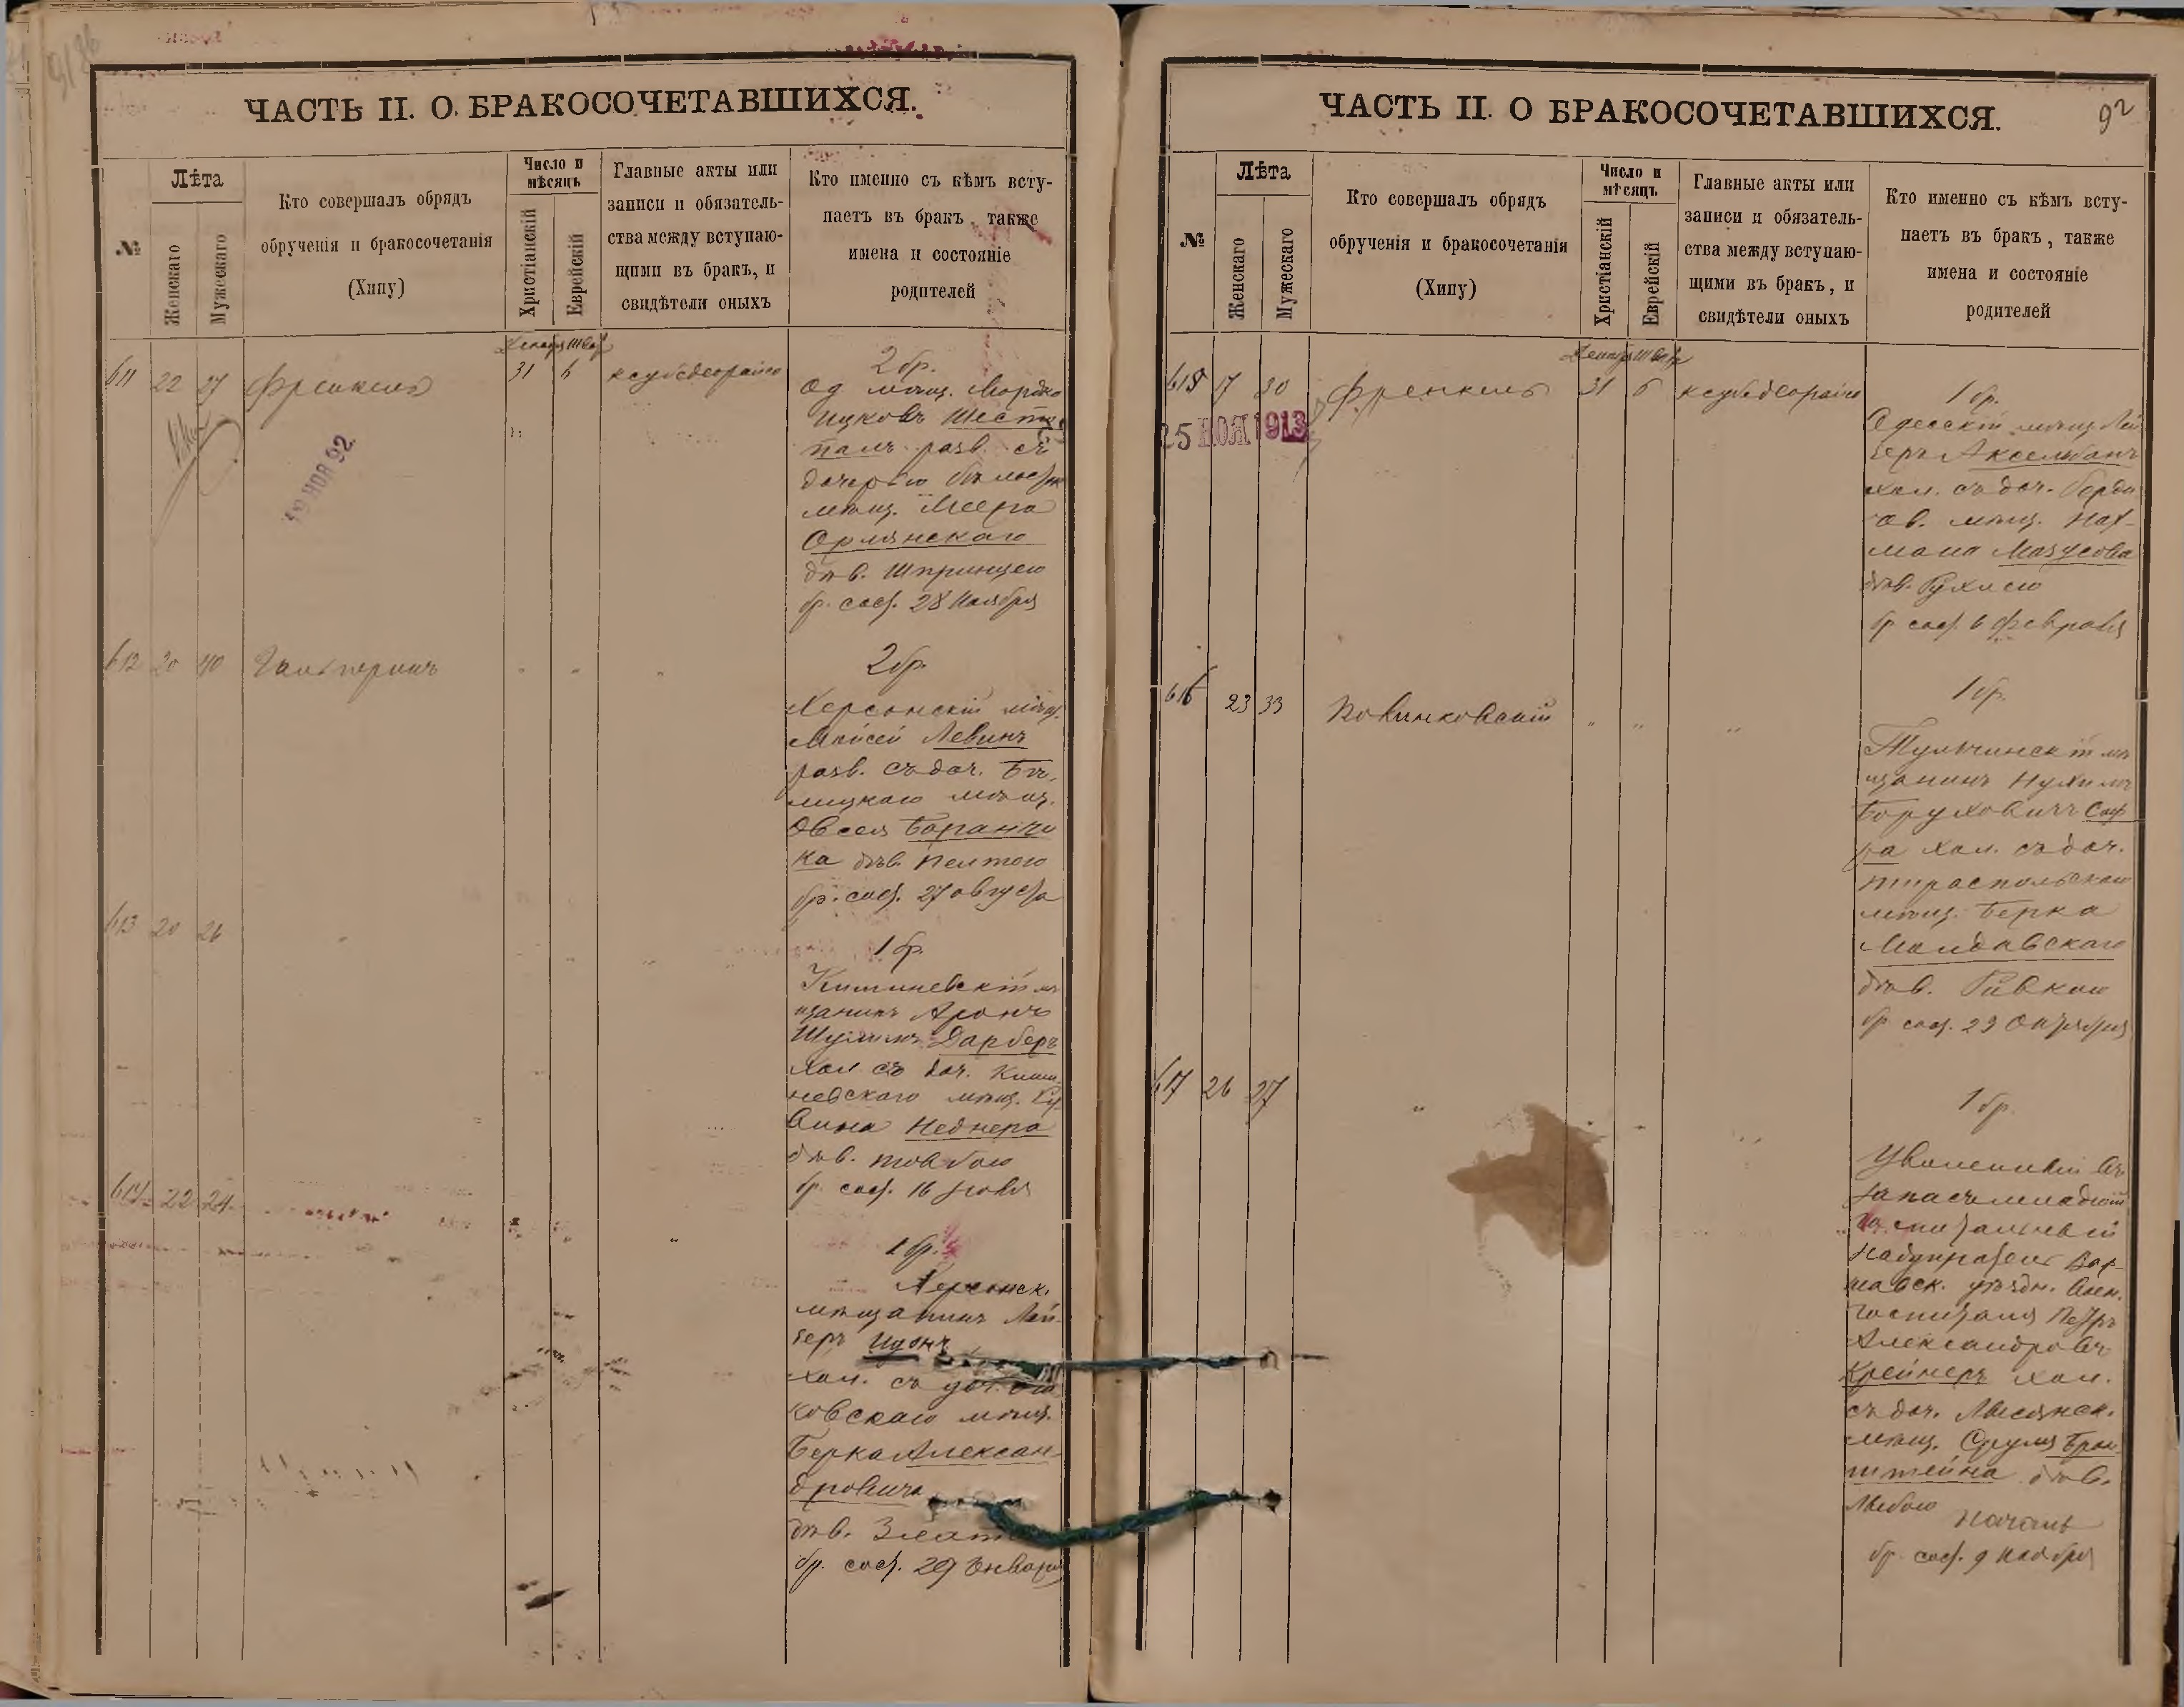 ЧАСТЬ II. О БРАКОСОЧЕТАВШИХСЯ.
№
Лѣта
Женскаго
Мужескаго
Кто совершалъ обрядъ
обрученія и бракосочетанія
(Хипу)
Число и
мѣсяцъ
Христіанскій
Еврейскій
Главные акты или
записи и обязатель-
ства между вступаю-
щими въ бракъ, и
свидѣтели оныхъ
Кто именно съ кѣмъ всту-
паетъ въ бракъ, также
имена и состояніе
родителей
611 22 27 Френкель 31 6
2 бр.
Од. мѣщ. Мордко
Ицковъ Шест
палъ разв. съ
дочерью
мѣщ. Меера
Орлянскаго
дѣв. Шпринцею
бр. сост. 28 Ноября
НОЯ 92
612 20 40 Гальперинъ " " "
2 бр.
Херсонскій мѣщ.
Мойсей Левинъ
разв. съ доч. Бѣ-
лицкаго мѣщ.
Овсея Баранчи
ка дѣв.
бр. сост. 27 августа
613 20 26 " " " "
1 бр.
Кишиневскій мѣ
щанинъ Аронъ
Шулимъ Дарберъ
хол. съ доч. Киши-
невскаго мѣщ. Ру-
вина Неднера
дѣв. Товбою
бр. сост. 16
614 22 24 "
1 бр.
Херсонск.
мѣщанинъ Лей-
зеръ
хол. съ доч.
ковскаго мѣщ.
Берка Алексан-
дровича
дѣв.
бр. сост. 29 Января
ЧАСТЬ II. О БРАКОСОЧЕТАВШИХСЯ.
92
№
Лѣта
Женскаго
Мужескаго
Кто совершалъ обрядъ
обрученія и бракосочетанія
(Хипу)
Число и
мѣсяцъ
Христіанскій
Еврейскій
Главные акты или
записи и обязатель-
ства между вступаю-
щими въ бракъ, и
свидѣтели оныхъ
Кто именно съ кѣмъ всту-
паетъ въ бракъ, также
имена и состояніе
родителей
615 17 30 Френкель 31 6
25 НОЯ 1913
1 бр.
Одесскій мѣщ. Лей
зеръ Аксельбантъ
хол. съ доч.
ов. мѣщ. Нах-
мана Мазусова
дѣв. Рухлею
бр. сост. 6 Февраля
616 23 33 " " "
1 бр.
Тульчинскій мѣ
щанинъ Нухимъ
Боруховичъ Саф
ра хол. съ доч.
тираспольскаго
мѣщ. Берка
Молдавскаго
дѣв. Ривкою
бр. сост. 29 Октября
617 26 27 "
1 бр.
Уволенный въ
запасъ младшій
госпитальный
надзиратель Вар-
шавск. уѣздн. воен.
госпиталя Петръ
Александровъ
Крейнеръ хол.
съ доч. Лысянск.
мѣщ. Сруля Брон-
штейна дѣв.
Любою
бр. сост. 9 Ноября